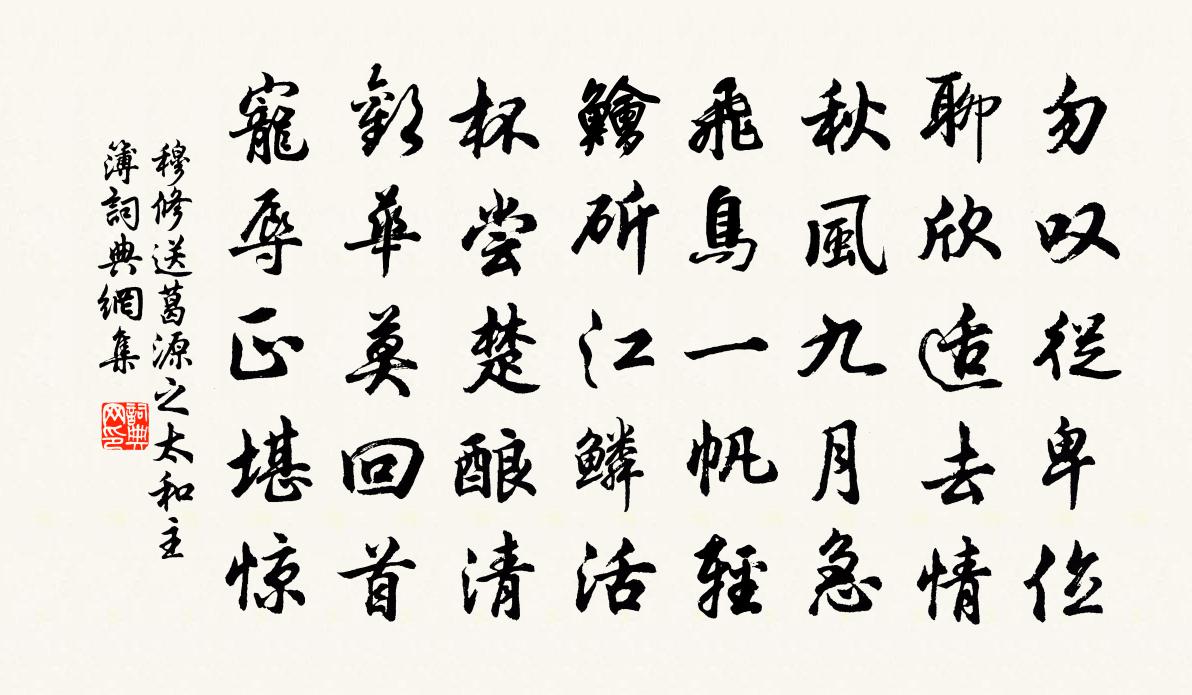 勿叹從卑位
聊欣适去情
秋風九月急
飛鳥一帆輕
鱠斫江鱗活
杯尝楚酿清
華莫回首
寵辱正堪惊
穆修送葛源之太和主
簿詞典網集
詞典
网印